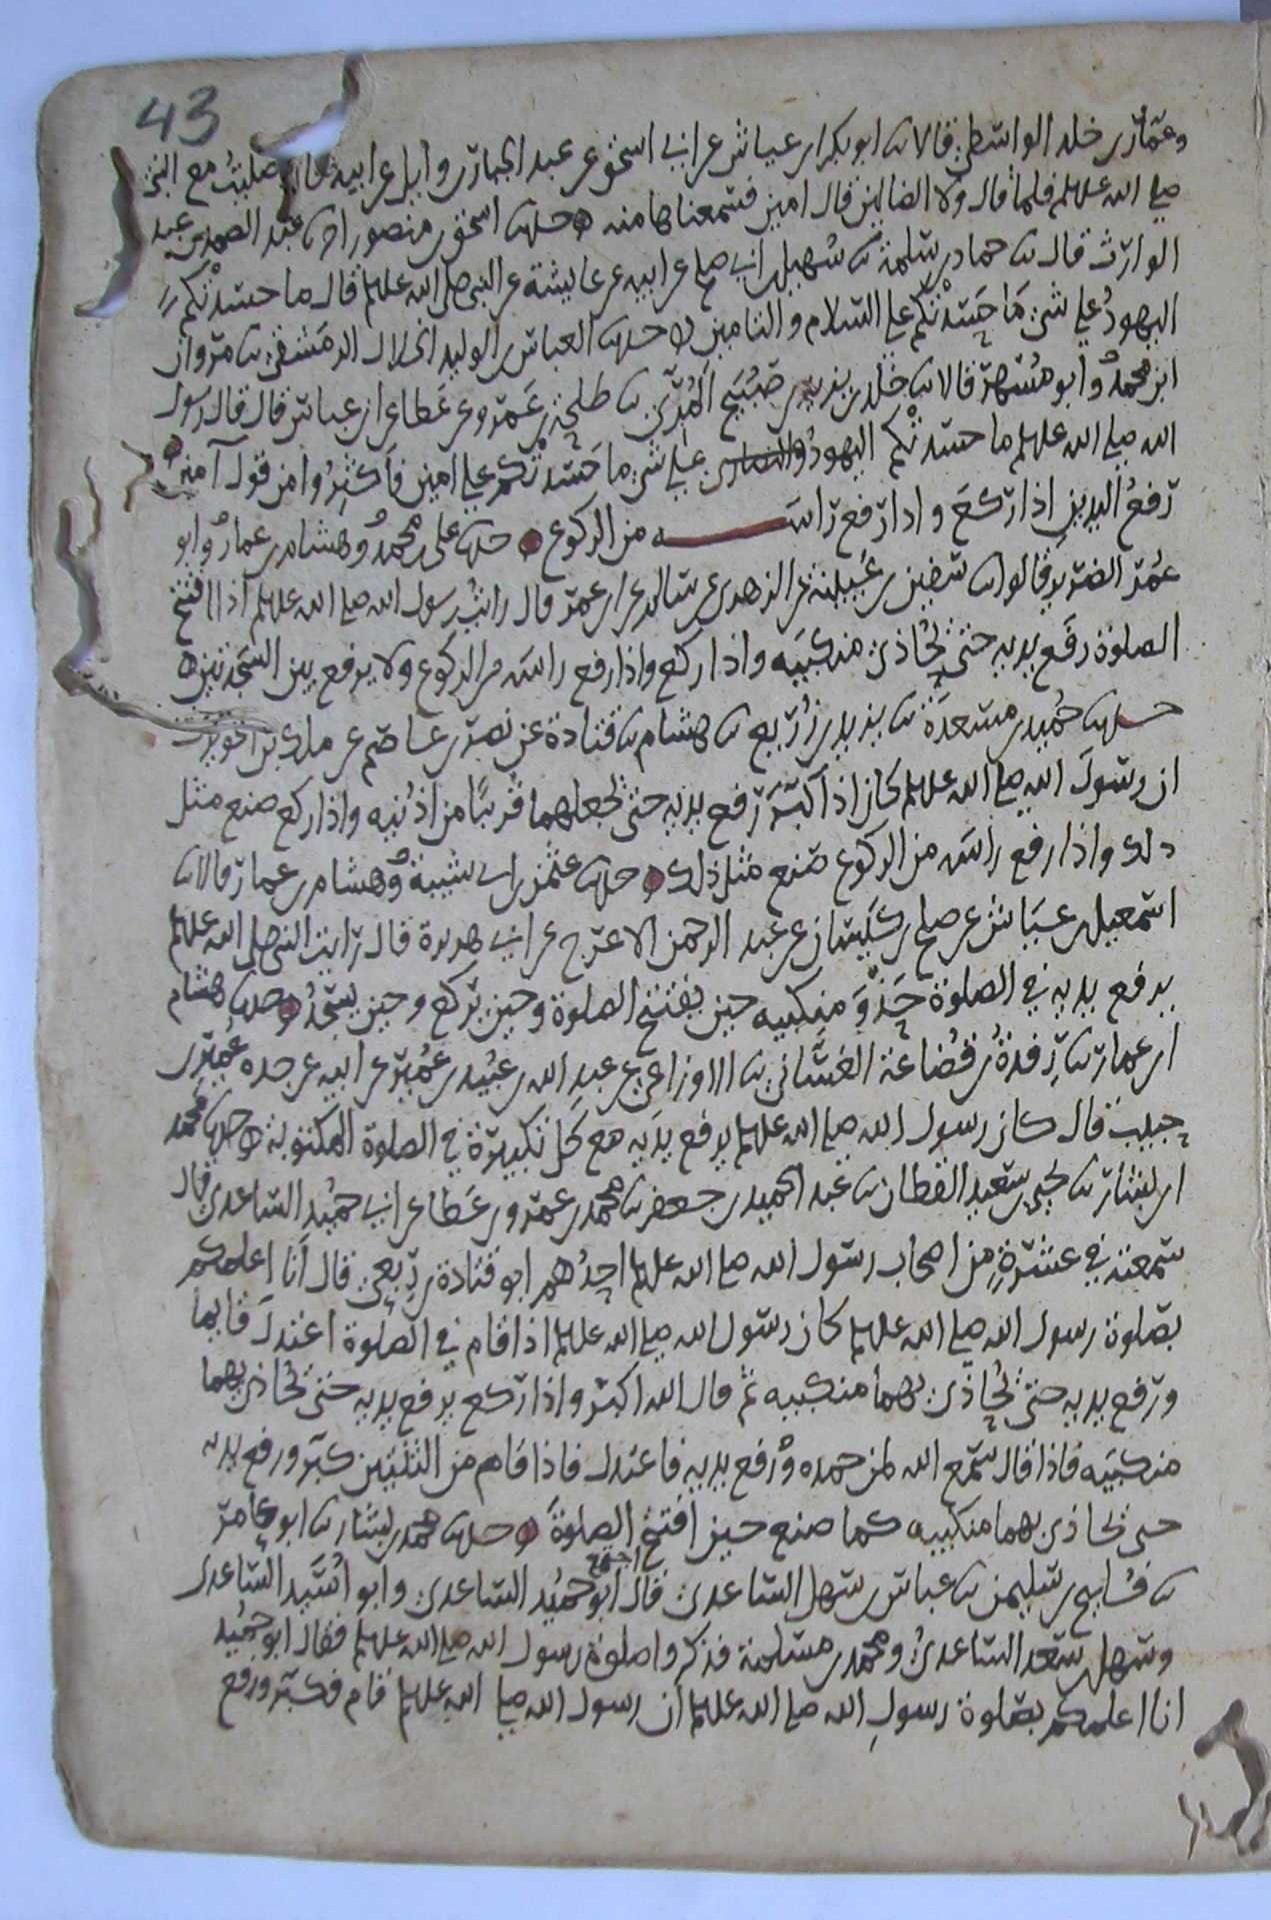 43
وعمار بن خلد الواسطي قالا ثنا ابو بكر بن عياش عن ابي اسحق عن عبد الجبار بن وايل عن ابيه قال صليت مع النبي
صلى الله عليه وسلم فلما قال ولا الضالين قال امين فسمعناها منه حدثنا اسحق بن منصور انا عبد الصمد بن عبد
الوارث قال ثنا حماد بن سلمة ثنا سهيل بن ابي صلح عن ابيه عن عايشة عن النبي صلى الله عليه وسلم قال ما حسدتكم
اليهود على شي ما حسدتكم على السلام والتامين حدثنا العباس بن الوليد الخلال الدمشقي ثنا مروان
ابن محمد وابو مسهر قالا ثنا خلد بن يزيد بن صبيح المري ثنا طلحة بن عمرو عن عطا عن ابن عباس قال قال رسول
الله صلى الله عليه وسلم ما حسدتكم اليهود والنصارى على شي ما حسدتكم على امين فاكثروا من قول آمين
رفع اليدين اذا ركع واذا رفع راسه من الركوع حدثنا علي بن محمد وهشام بن عمار وابو
عمر الضرير قالوا ثنا سفين بن عيينة عن الزهري عن سالم عن ابن عمر قال رايت رسول الله صلى الله عليه وسلم اذا افتتح
الصلوة رفع يديه حتى يحاذي منكبيه واذا ركع واذا رفع راسه من الركوع ولا يرفع بين السجدتين
حدثنا حميد بن مسعدة ثنا يزيد بن زريع ثنا هشام ثنا قتادة عن نصر بن عاصم عن ملك بن الحويرث
ان رسول الله صلى الله عليه وسلم كان اذا كبر رفع يديه حتى يجعلهما قريبا من اذنيه واذا ركع صنع مثل
ذلك واذا رفع راسه من الركوع صنع مثل ذلك حدثنا عثمن بن ابي شيبة وهشام بن عمار قالا ثنا
اسمعيل بن عياش عن صلح بن كيسان عن عبد الرحمن الاعرج عن ابي هريرة قال رايت النبي صلى الله عليه وسلم
يرفع يديه في الصلوة حذو منكبيه حين يفتتح الصلوة وحين يركع وحين يسجد حدثنا هشام
ابن عمار ثنا رفدة بن قضاعة الغساني ثنا الاوزاعي عن عبد الله بن عبيد بن عمير عن ابيه عن جده عمير بن
حبيب قال كان رسول الله صلى الله عليه وسلم يرفع يديه مع كل تكبيرة في الصلوة المكتوبة حدثنا محمد
ابن بشار ثنا يحيى بن سعيد القطان ثنا عبد الحميد بن جعفر ثنا محمد بن عمرو بن عطا عن ابي حميد الساعدي قال
سمعته في عشرة من اصحاب رسول الله صلى الله عليه وسلم احدهم ابو قتادة بن ربعي قال انا اعلمكم
بصلوة رسول الله صلى الله عليه وسلم كان رسول الله صلى الله عليه وسلم اذا قام في الصلوة اعتدل قايما
ورفع يديه حتى يحاذي بهما منكبيه ثم قال الله اكبر واذا ركع يرفع يديه حتى يحاذي بهما
منكبيه فاذا قال سمع الله لمن حمده ورفع يديه فاعتدل فاذا قام من الثنتين كبر ورفع يديه
حتى يحاذي بهما منكبيه كما صنع حين افتتح الصلوة حدثنا محمد بن بشار ثنا ابو عامر
ثنا فليح بن سليمن ثنا عباس بن سهل الساعدي قال اجتمع ابو حميد الساعدي وابو اسيد الساعدي
وسهل بن سعد الساعدي ومحمد بن مسلمة فذكروا صلوة رسول الله صلى الله عليه وسلم فقال ابو حميد
انا اعلمكم بصلوة رسول الله صلى الله عليه وسلم ان رسول الله صلى الله عليه وسلم قام فكبر ورفع